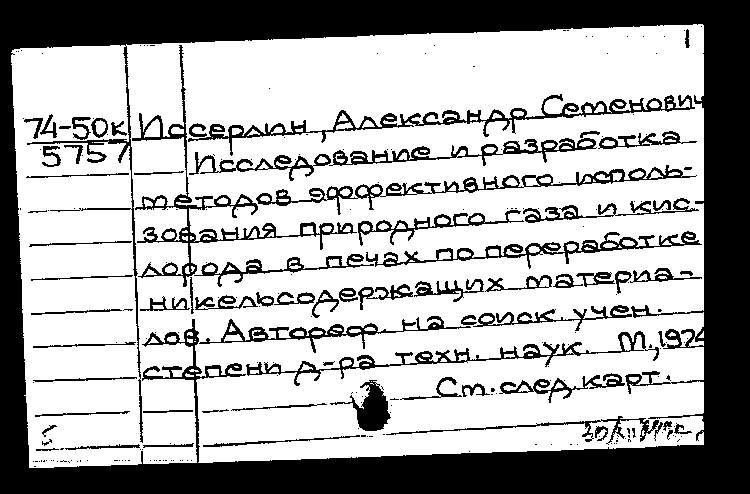 1
74-50к Иссерлин, Александр Семенович
5757 Исследование и разработка
методов эффективного исполь-
зования природного газа и кис-
лорода в печах по переработке
никельсодержащих материа-
лов. Автореф. на соиск. учен.
степени д-ра техн. наук. М., 1974
См. след. карт.
5